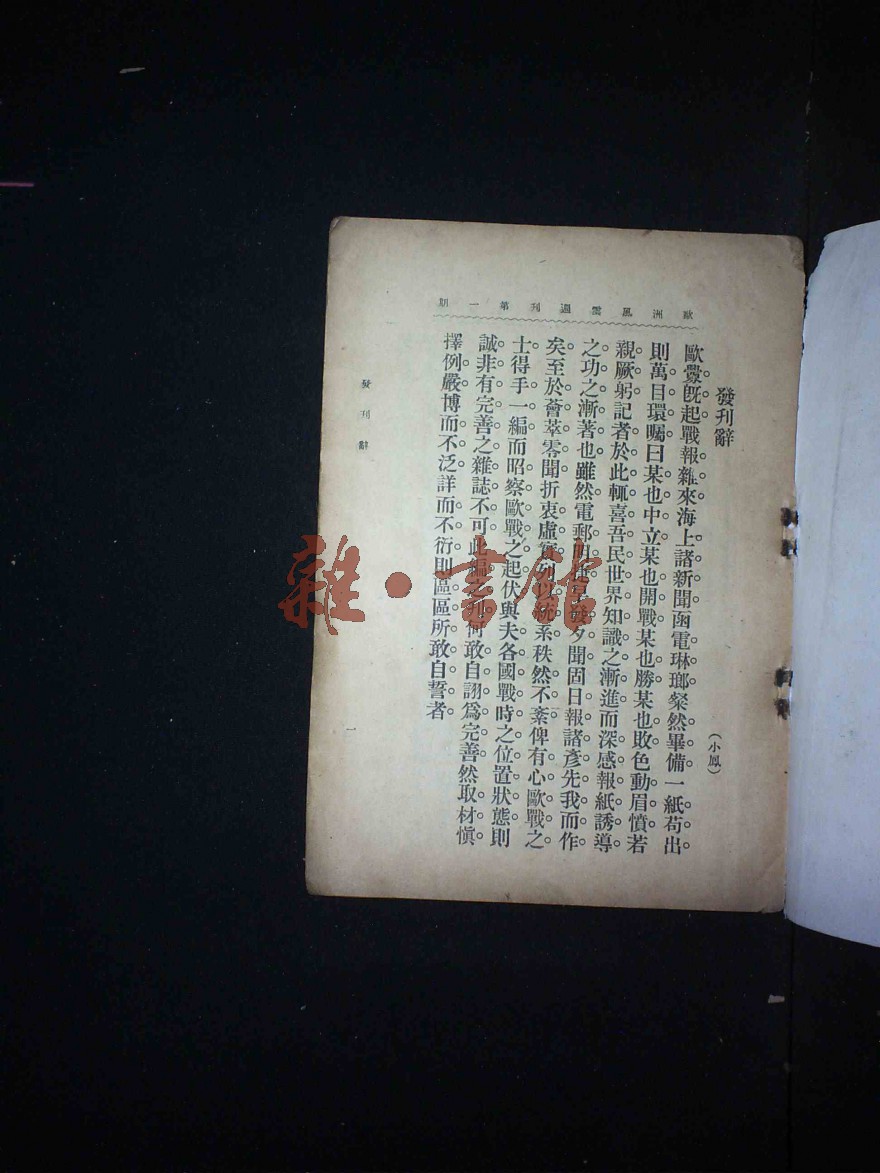 歐洲風雲週刊第一期
發刊辭
(小鳳)
歐釁旣起戰報雜來海上諸新聞函電琳瑯粲然畢備一紙苟出
則萬目環囑曰某也中立某也開戰某也勝某也敗色動眉憤若
親厥躬記者於此輒喜吾民世界知識之漸進而深感報紙誘導
之功之漸著也雖然電郵 發夕聞固日報諸彥先我而作
矣至於薈萃零聞折衷虛實列以統系秩然不紊俾有心歐戰之
士得手一編而昭察歐戰之起伏與夫各國戰時之位置狀態則
誠非有完善之雜誌不可此編之刊何敢自詡爲完善然取材愼
擇例嚴博而不泛詳而不衍則區區所敢自誓者
發刊辭
一
雜·書館